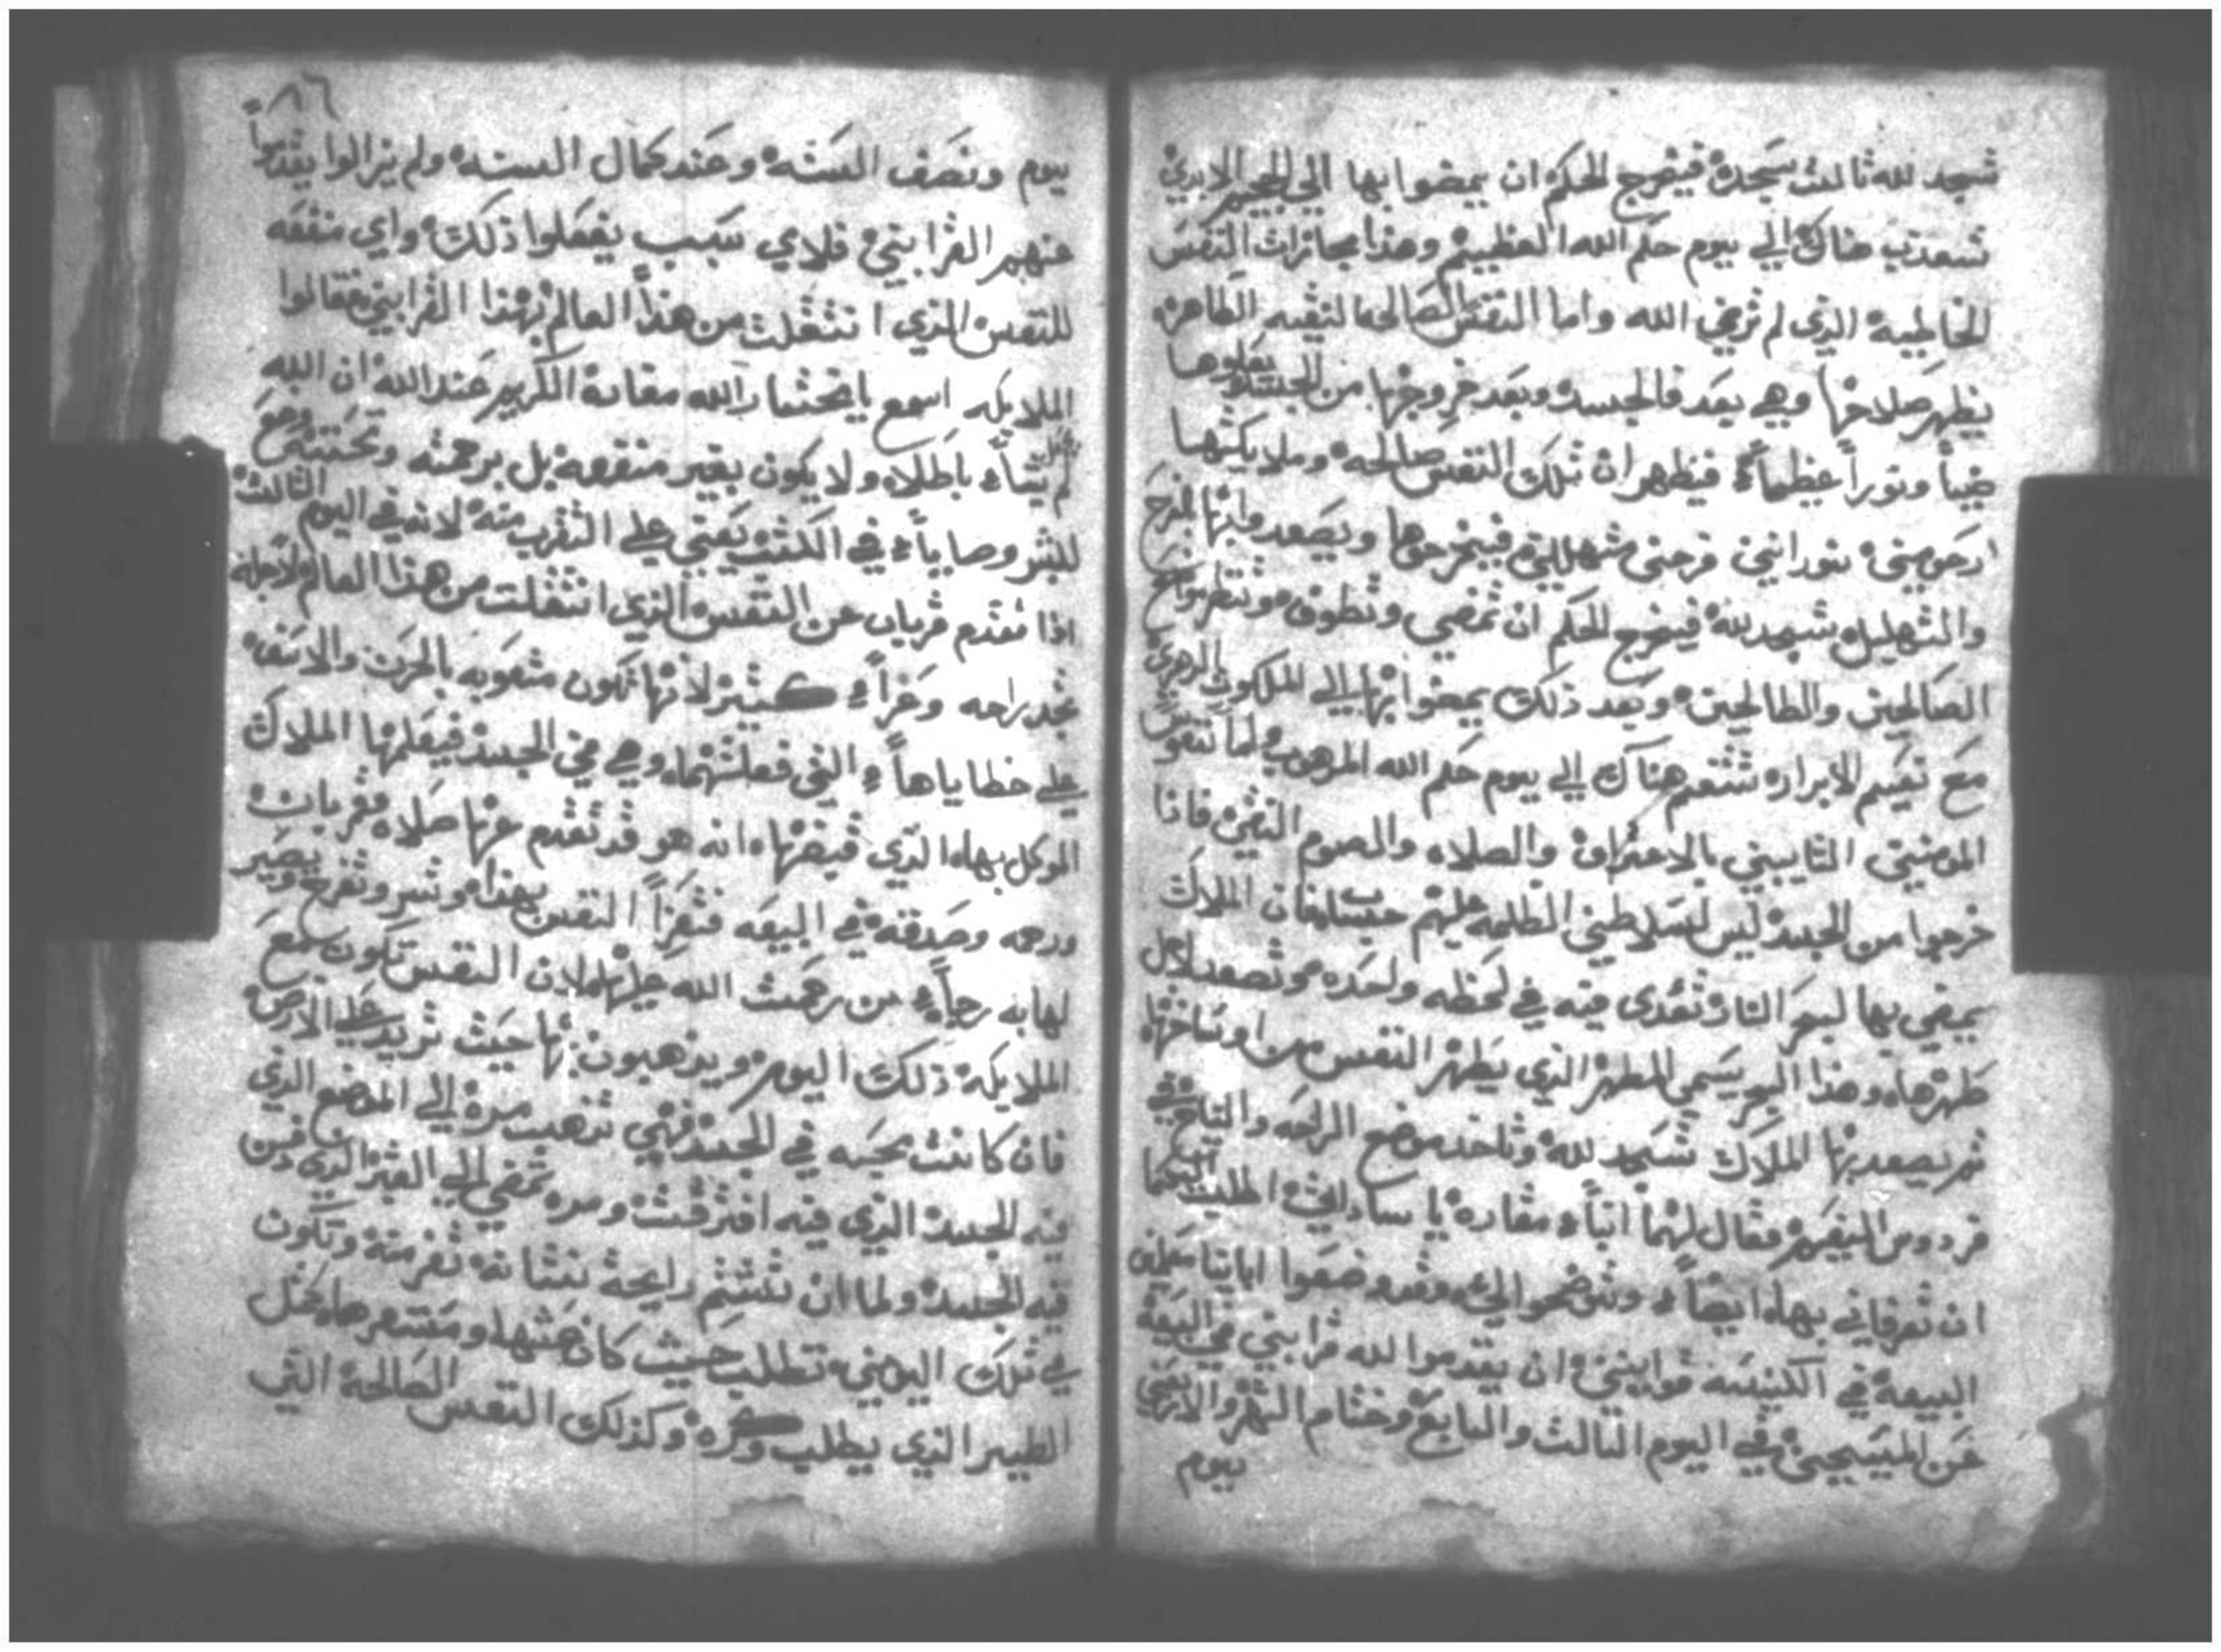 تسجد لله ثالث سجدة فيخرج الحكم ان يمضوا بها الي الجحيم الابدي
تتعذب هناك الي يوم حكم الله العظيم وهذا مجازات النفس
الخاطية الذي لم ترضي الله واما النفس الصالحه النقيه الطاهره
يظهر صلاحها وهي بعد فالجسد وبعد خروجها من الجسد يعلوها
ضيا ونوراً عظيماً فيظهر ان تلك النفس صالحه وملايكتها
نورانيين فرحين متهللين فيخرجوها ويصعدوا بها بالفرح
والتهليل تسجد لله فيخرج الحكم ان تمضي وتطوف وتنظر مواضع
الصالحين والطالحين وبعد ذلك يمضوا بها الي الملكوت
مع نعيم الابرار تتنعم هناك الي يوم حكم الله المرهوب ولما نفوس
المومنين التايبين بالاعتراف والصلاه والصوم النقي فاذا
خرجوا من الجسد ليس لسلاطين الظلمه عليهم فان الملاك
يمضي بها لبحر النار تعدى فيه في لحظه واحده وتصعد لاجل
طهرها وهذا البحر يسمي المطهر الذي يطهر النفس من اوساخها
ثم يصعد بها الملاك تسجد لله وتاخد موضع الراحه والنياح في
فردوس النعيم فقال لهما انبا مقاره يا ساداتي اطلب اليكما
ان تعرفاني بهذا ايضاً وتوضحوا الي وقد وضعوا ابايتا معلمي
البيعة في الكنيسه قوانين ان يقدموا لله قرابين في البيعة
عن المسيحين في اليوم الثالث والسابع وختام الشهر والاربعين
يوم
٨٦
يوم ونصف السنه وعند كمال السنه ولم يزالوا يقدموا
عنهم القرابين فلاي سبب يفعلوا ذلك واي منفعه
للنفس الذي انتقلت من هذا العالم بهذا القرابين فقالوا
الملايكه اسمع يا مقارة الكريم عند الله ان الله
لم يشاء باطلا ولا يكون بغير منفعه بل برحمته وتحننه وضع
للبشر وصايا في الكنيسه علي التقرب منه لانه في اليوم الثالث
اذا تقدم قربان عن النفس الذي انتقلت من هذا العالم لاجله
تجد راحه وعزاً كثير لانها تكون متعوبه بالحزن والاسف
علي خطاياها التي فعلتهما وهي في الجسد فيعلمها الملاك
الموكل بها الذي قبضها انه هو قد تقدم عنها صلاه وقربان
ورحمه وصدقة في البيعه فتعزا النفس بهذا وتسر وتفرح ويصير
لها به رجاً من رحمت الله عليها لان النفس تكون مع
الملايكة ذلك اليوم ويذهبون بها حيث تريد علي الارض
فان كانت محبه في الجسد فهي تذهب مرة الي الموضع الذي
فيه الجسد الذي فيه افترقت ومره تمضي الي القبر الذي دفن
فيه الجسد ولما ان تشتم رايحة نتنا نه تفر منه وتكون
في تلك اليومين تطلب حيث كان عشها ومستقرها مثل
الطير الذي يطلب وكره وكذلك النفس الصالحة التي